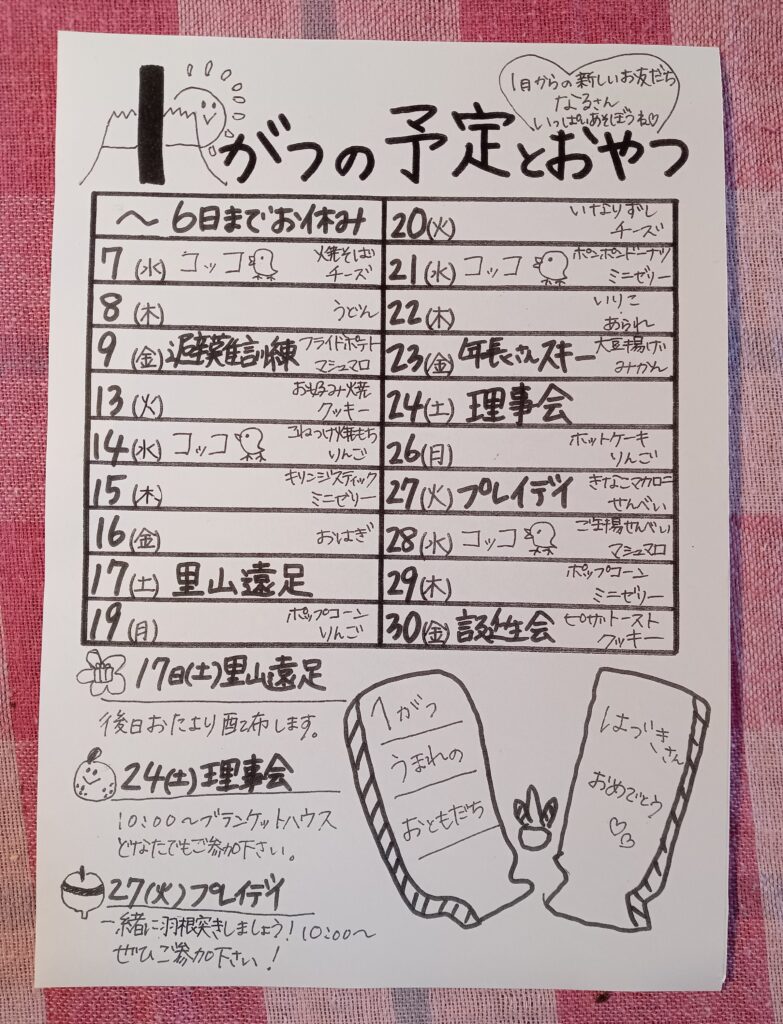 1月からの新しいお友だち
なるさん
いっぱいあそぼうね♡
1がつの予定とおやつ
〜6日までお休み
7(水) コッコ 焼そば
チーズ
8(木) うどん
9(金) 避難訓練 フライドポテト
マシュマロ
13(火) お好み焼
クッキー
14(水) コッコ こねつけ焼もち
りんご
15(木) キリンジスティック
ミニゼリー
16(金) おはぎ
17(土) 里山遠足
19(月) ポップコーン
りんご
20(火) いなりずし
チーズ
21(水) コッコ ポンポンドーナツ
ミニゼリー
22(木) いりこ
あられ
23(金) 年長さんスキー 大豆揚げ
みかん
24(土) 理事会
26(月) ホットケーキ
りんご
27(火) プレイデイ きなこマカロニ
せんべい
28(水) コッコ ご飯せんべい
マシュマロ
29(木) ポップコーン
ミニゼリー
30(金) 誕生会 ピザトースト
クッキー
17日(土)里山遠足
後日おたより配布します。
24(土)理事会
10:00〜ブランケットハウス
どなたでもご参加下さい。
27(火)プレイデイ
一緒に羽根突きしましょう!10:00〜
ぜひご参加下さい!
1がつ
うまれの
おともだち
はづきさん
おめでとう
♡